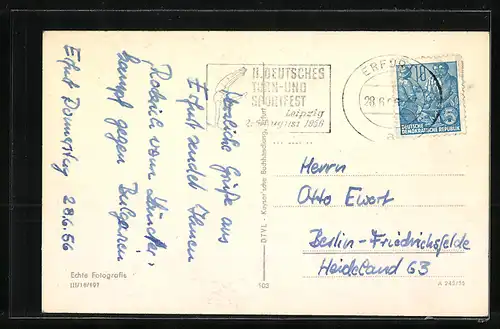 Herzliche Grüße aus
Erfurt sendet Ihnen
Roland vom Länder-
kampf gegen Bulgarien
Erfurt Donnerstag 28.6.56
II. DEUTSCHES
TURN-UND
SPORTFEST
Leipzig
August 1956
ERFURT
28.6.56
18
DEUTSCHE
DEMOKRATISCHE REPUBLIK
Herrn
Otto Ewert
Berlin-Friedrichsfelde
Heideland 63
DTVL - Keyser'sche Buchhandlung, Erfurt
103
A 245/55
Echte Fotografie
III/18/197